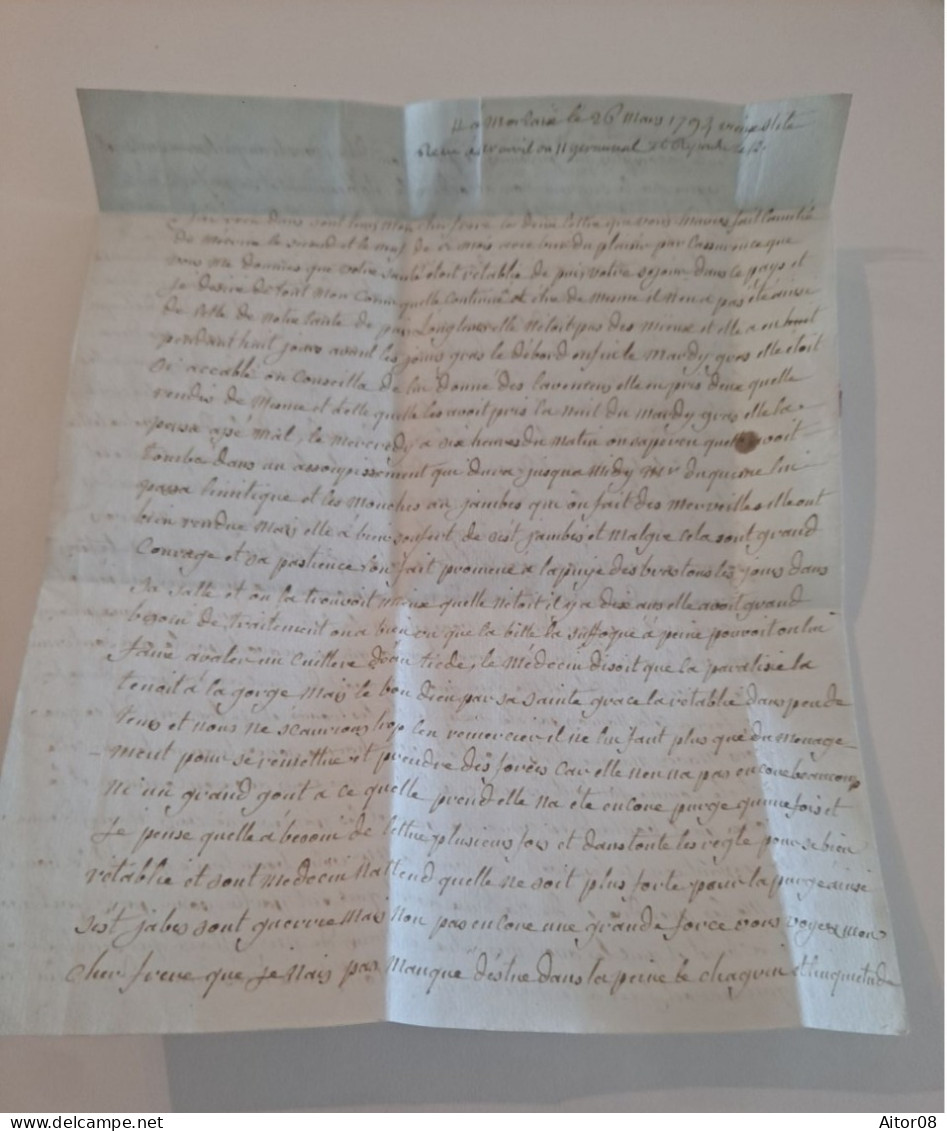 a Morlaix le 26 Mars 1794 vieux stile
Reçu avril ou 11 germinal
dans mon cher frere deux lettre que vous m'avies fait l'amitié
de le second et le neuf de ce mois avec bien du plaisir par l'assurence que
vous me donnies que votre santé étoit rétablie de puis votre sejour dans le pays et
je desire de tout mon coeur quelle continue et être de meme il n'en a pas été ainsie
de celle de notre tante de elle n'etoit pas des mieux et elle a
pendant huit jours avant les jours gras le débord enfin le mardy gras elle étoit
si accablé on conseilla de lui donné des lavemens elle en pris deux quelle
rendis de meme et telle quelle les avoit pris la nuit du mardy gras elle la
passa asé mal, le mercredy a six heures du matin on s'apéreu quelle avoit
tombé dans un assoupissement qui dura jusqua midy Mr duquesne lui
passa l'émitique et les mouches au jambes qui on fait des merveilles elle ont
bien rendue mais elle à bien soufert de sest jambes et malgre cela sont grand
courage et sa pastience l'on fait promené a l'apuye des bras tous les jours dans
sa salle et on la trouvoit mieux quelle n'étoit il y a dix ans elle avoit grand
besoin de traitement on a bien cru que la bille la suffoqué à peine pouvoit on lui
faire avaler un cuillere d'eau tiede, le médecin disoit que la paralisie la
tenoit á la gorge mais le bon dieu par sa sainte grace la rétablie dans peu de
tems et nous ne scaurions trop l'en remercier il ne lui faut plus que du menage-
-ment pour se remettre et prendre des forces car elle non na pas encore beaucoup
ni un grand gout a ce quelle prend elle na été encore purgé quune fois et
je pense quelle à besoin de l'ettre plusieurs fois et dans toute les regle pour se bien
rétablie et sont médecin n'attend quelle ne soit plus forte pour la purge ainsie
sest jabes sont guerrie mais non pas encore une grande force vous voyez mon
cher frere que je nais pas manqué d'estre dans la peine le chagrin et l'inquietude
Aitor08